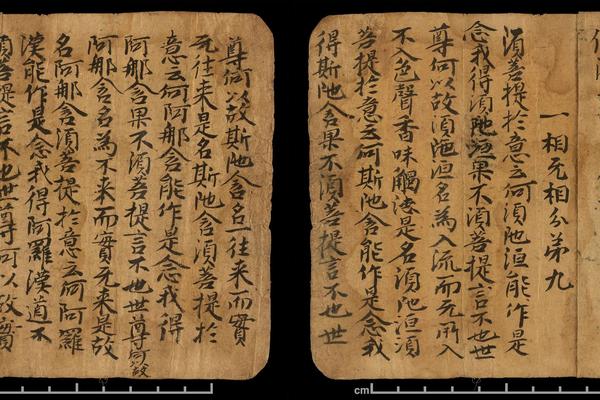 一相无相分第九
須菩提於意云何須陁洹能作是
念我得須陁洹果不須菩提言不也世
尊何以故須陁洹名為入流而无所入
不入色聲香味觸法是名須陁洹須
菩提於意云何斯陁含能作是念我
得斯陁含果不須菩提言不也世
尊何以故斯陁含名一往来而實
无往来是名斯陁含須菩提於
意云何阿那含能作是念我得
阿那含果不須菩提言不也世尊何以故
阿那含名為不来而實无来是故
名阿那含須菩提於意云何阿羅
漢能作是念我得阿羅漢道不
須菩提言不也世尊何以故實
cm